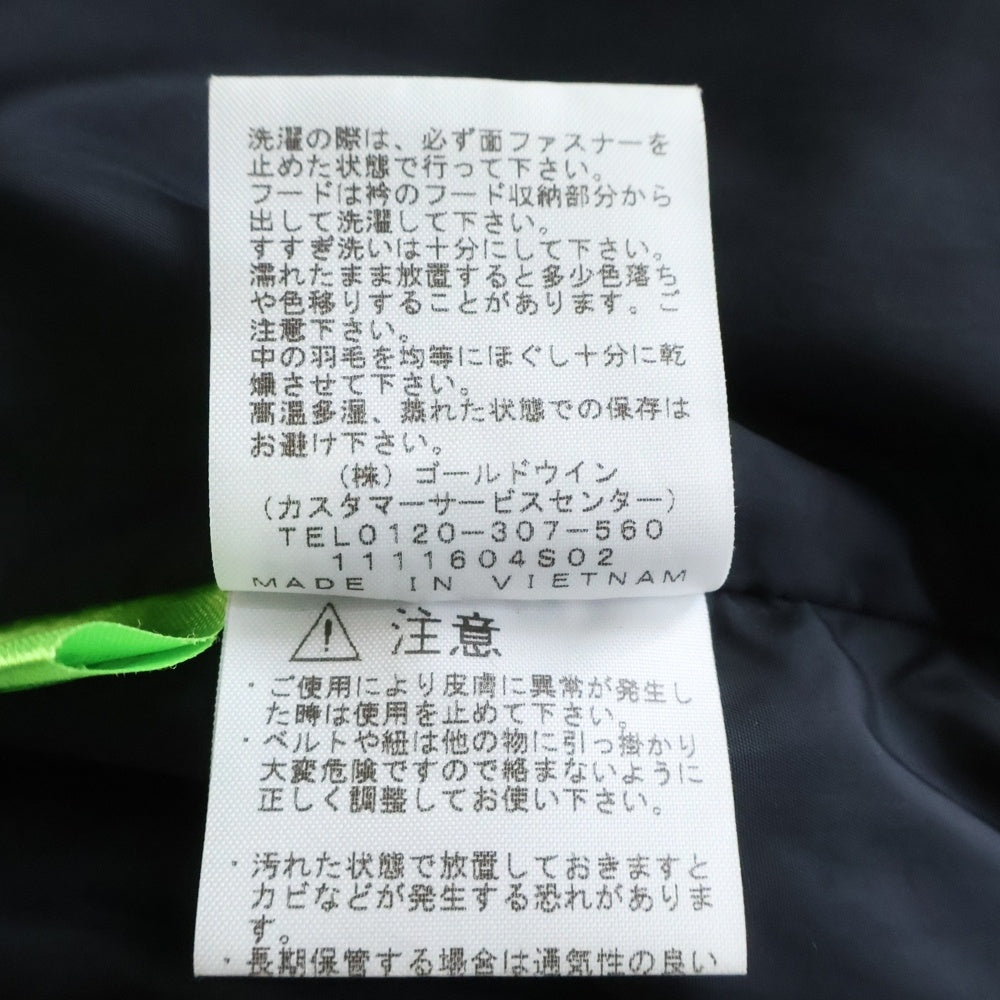 洗濯の際は、必ず面ファスナーを
止めた状態で行って下さい。
フードは衿のフード収納部分から
出して洗濯して下さい。
すすぎ洗いは十分にして下さい。
濡れたまま放置すると多少色落ち
や色移りすることがあります。ご
注意下さい。
中の羽毛を均等にほぐし十分に乾
燥させて下さい。
高温多湿、蒸れた状態での保存は
お避け下さい。
(株)ゴールドウイン
(カスタマーサービスセンター)
TEL0120-307-560
1111604S02
MADE IN VIETNAM
注意
・ご使用により皮膚に異常が発生し
た時は使用を止めて下さい。
・ベルトや紐は他の物に引っ掛かり
大変危険ですので絡まないように
正しく調整してお使い下さい。
・汚れた状態で放置しておきますと
カビなどが発生する恐れがありま
す。
・長期保管する場合は通気性の良い